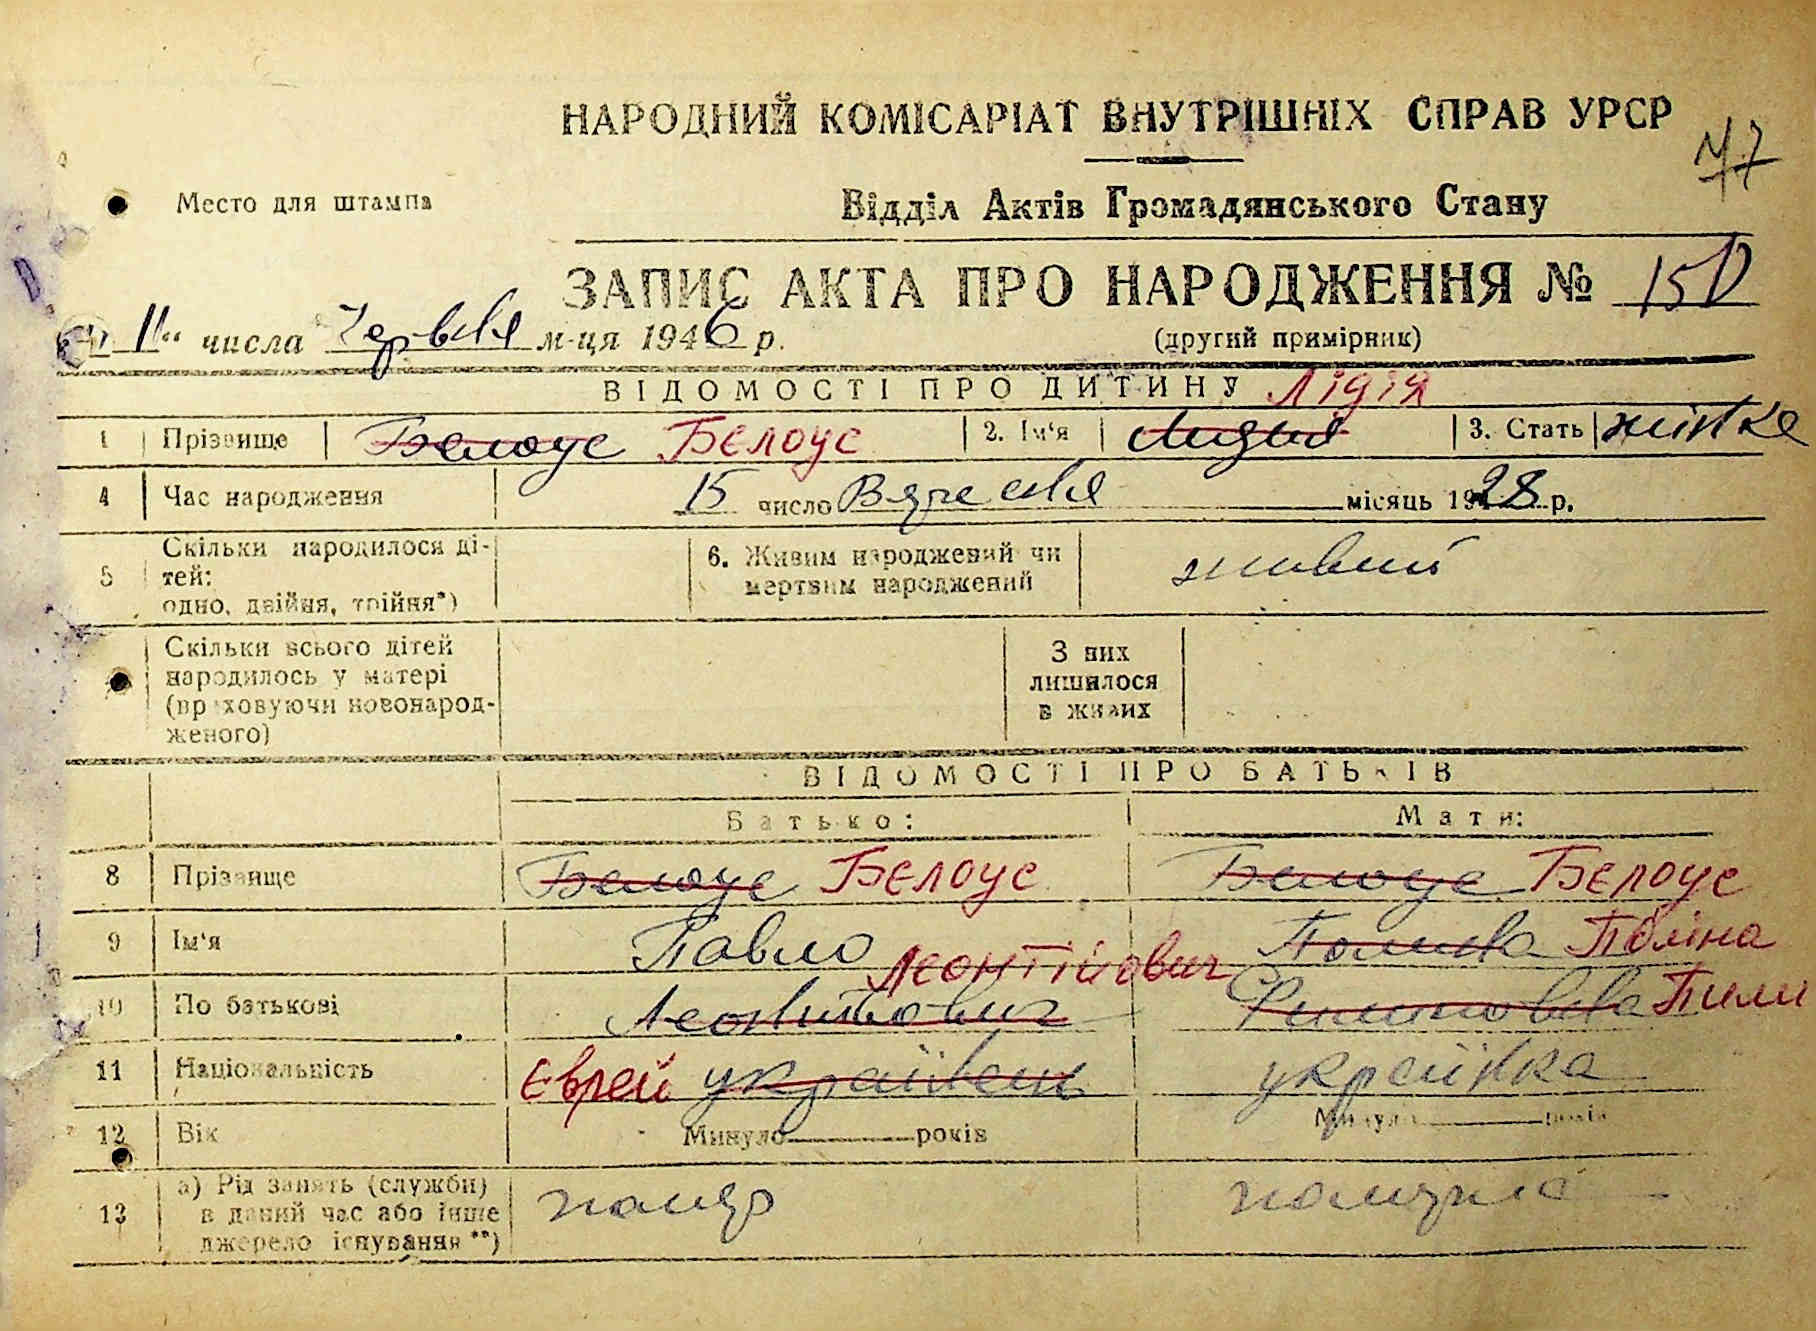 НАРОДНИЙ КОМІСАРІАТ ВНУТРІШНІХ СПРАВ УРСР
77
Место для штампа
Відділ Актів Громадянського Стану
ЗАПИС АКТА ПРО НАРОДЖЕННЯ № 150
„11“ числа Червня м-ця 1946 р.
(другий примірник)
ВІДОМОСТІ ПРО ДИТИНУ Лідія
1 Прізвище Белоус Бєлоус 2. Ім'я Лидия 3. Стать жінка
4 Час народження 15 число Вересня місяць 1928 р.
5 Скільки народилося ді-
тей:
одно, двійня, трійня*)
6. Живим народжений чи
мертвим народжений живий
Скільки всього дітей
народилось у матері
(враховуючи новонарод-
женого)
З них
лишилося
в живих
ВІДОМОСТІ ПРО БАТЬКІВ
Батько: Мати:
8 Прізвище Белоус Бєлоус Белоус Бєлоус
9 Ім'я Павло Полина Поліна
Леонтійович
10 По батькові Леонтьович Пили
11 Національність Єврей українець українка
12 Вік Минуло років Минуло років
13 а) Рід занять (служби)
в даний час або інше
джерело існування**)
помер померла